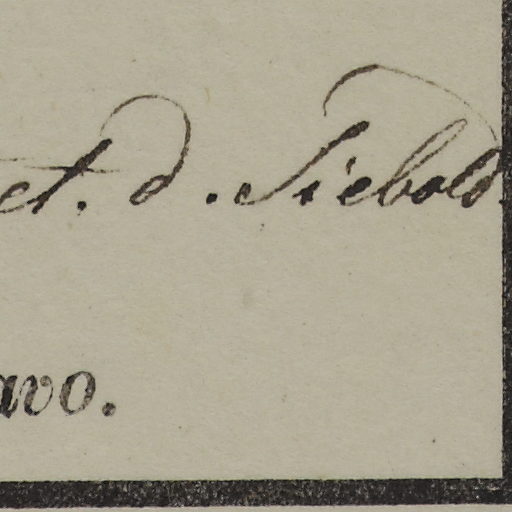 et. d. Siebold.
avo.